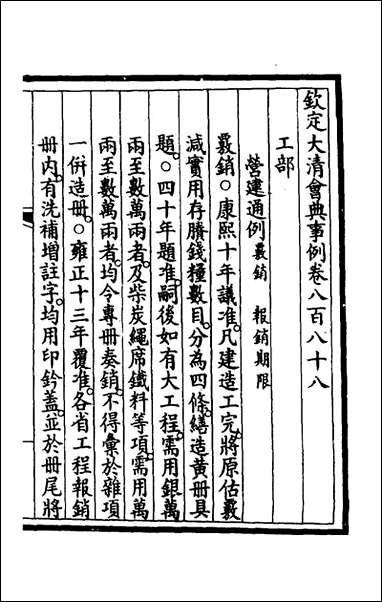 欽定大清會典事例卷八百八十八
工部
營建通例覈銷 報銷期限
覈銷○康熙十年議准。凡建造工完。將原估覈
減實用存賸錢糧數目。分為四條。繕造黃冊具
題。○四十年題准。嗣後如有大工程。需用銀萬
兩至數萬兩者。及柴炭繩席鐵料等項。需用萬
兩至數萬兩者。均令專冊奏銷。不得彙於雜項
一併造冊。○雍正十三年覆准。各省工程報銷
冊內。有洗補增註字。均用印鈐蓋。並於冊尾將